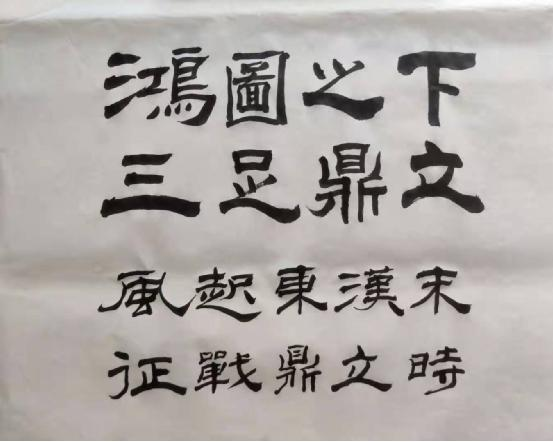 鴻圖之下
三足鼎立
風起東漢末
征戰鼎立時